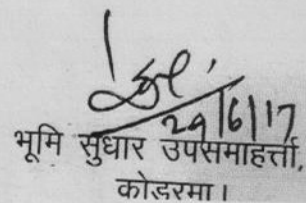 29/6/17
भूमि सुधार उपसमाहर्त्ता,
कोडरमा।